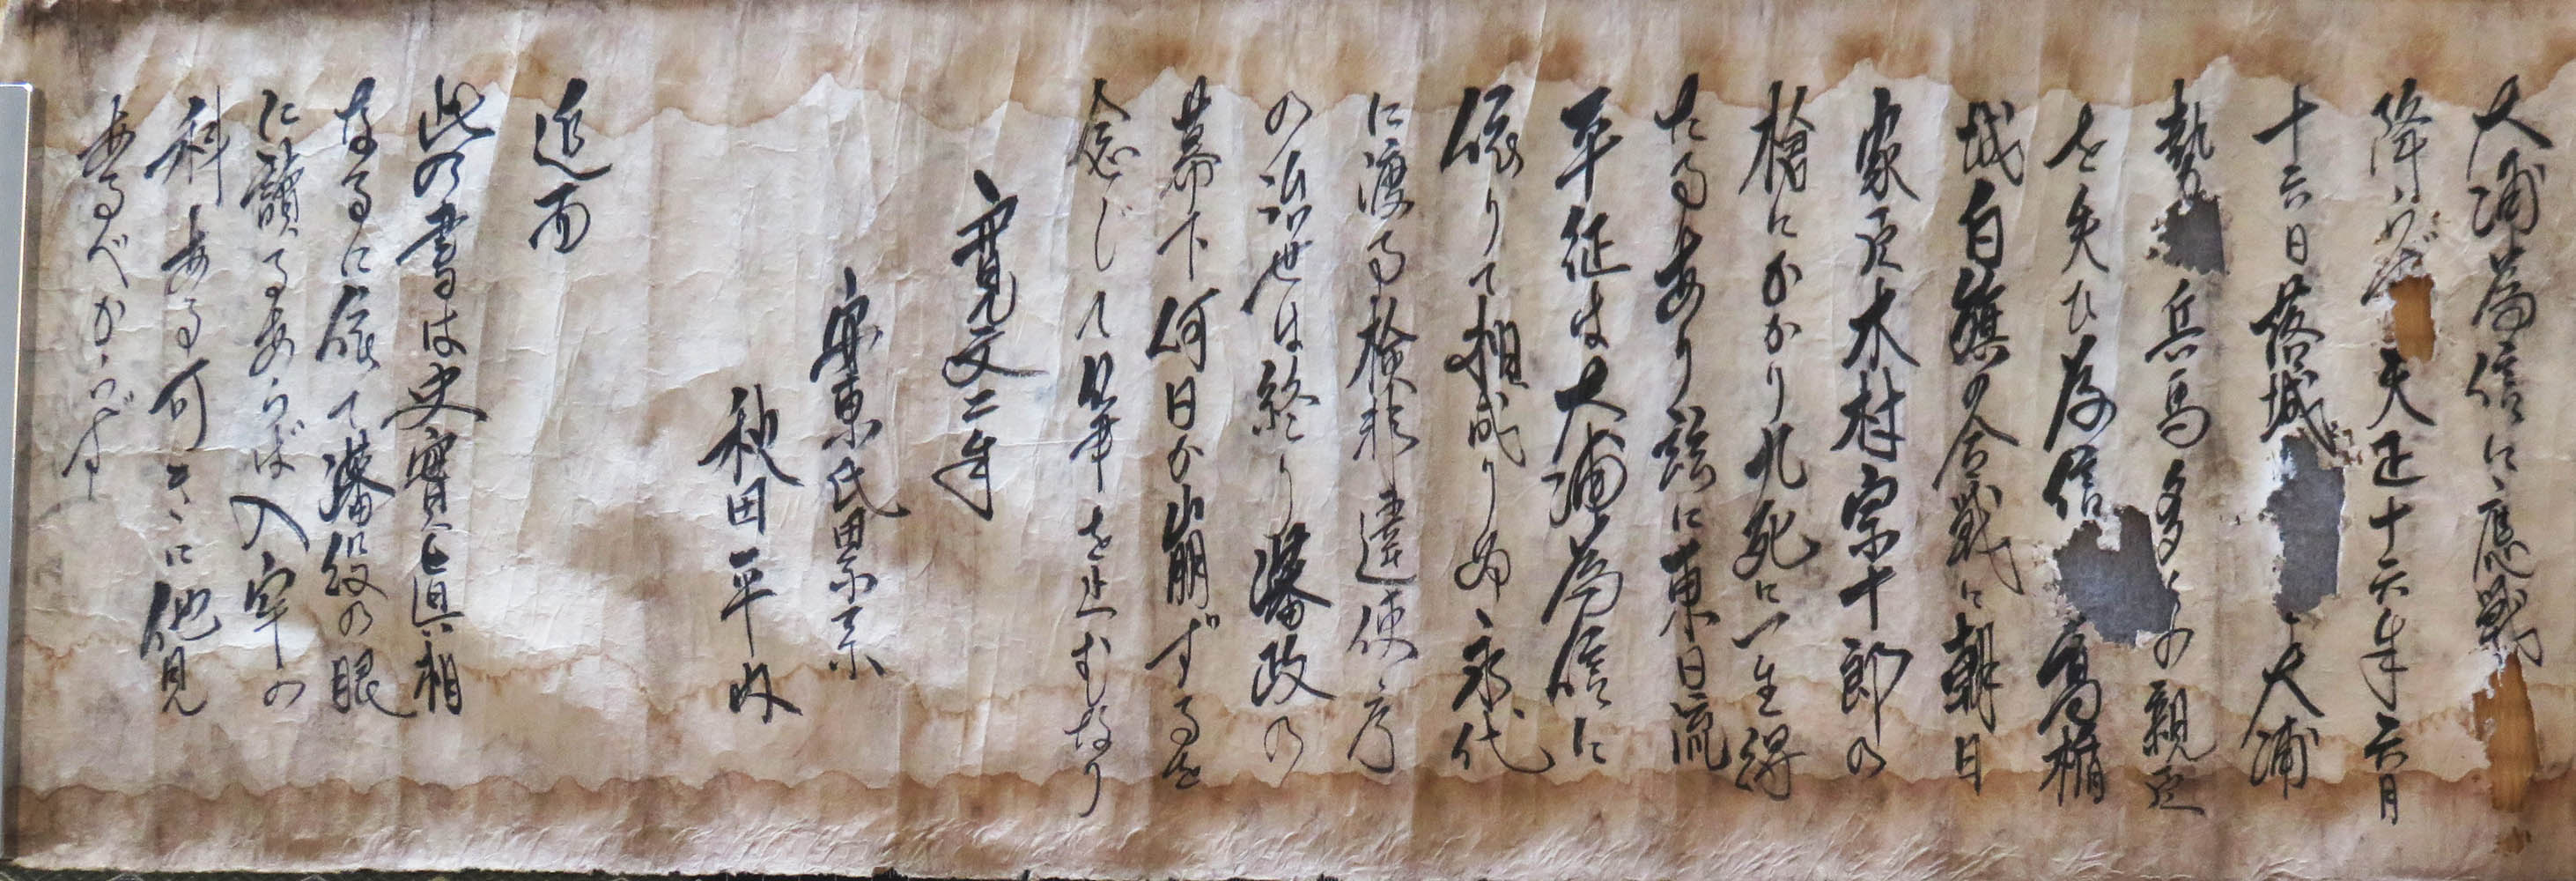 大浦為信に應戦
降らず 天正十六年六月
十六日落城 大浦
勢 兵馬多くの親臣
を失ひ為信 高楯
城白旗の合戦に朝日
家臣木村宗十郎の
槍にかかり九死に一生得
たるあり茲に東日流
平征は大浦為信に
依りて相成りぬ永代
に渡る検非違使之
の治世は終り藩政の
幕下何日か崩ずるを
念じて筆を止むなり
寛文二年
安東氏累系
秋田平内
追而
此の書は史實眞相
なるに依て藩役の眼
に讀るあらば入牢の
科ある可きに他見
あるべからず